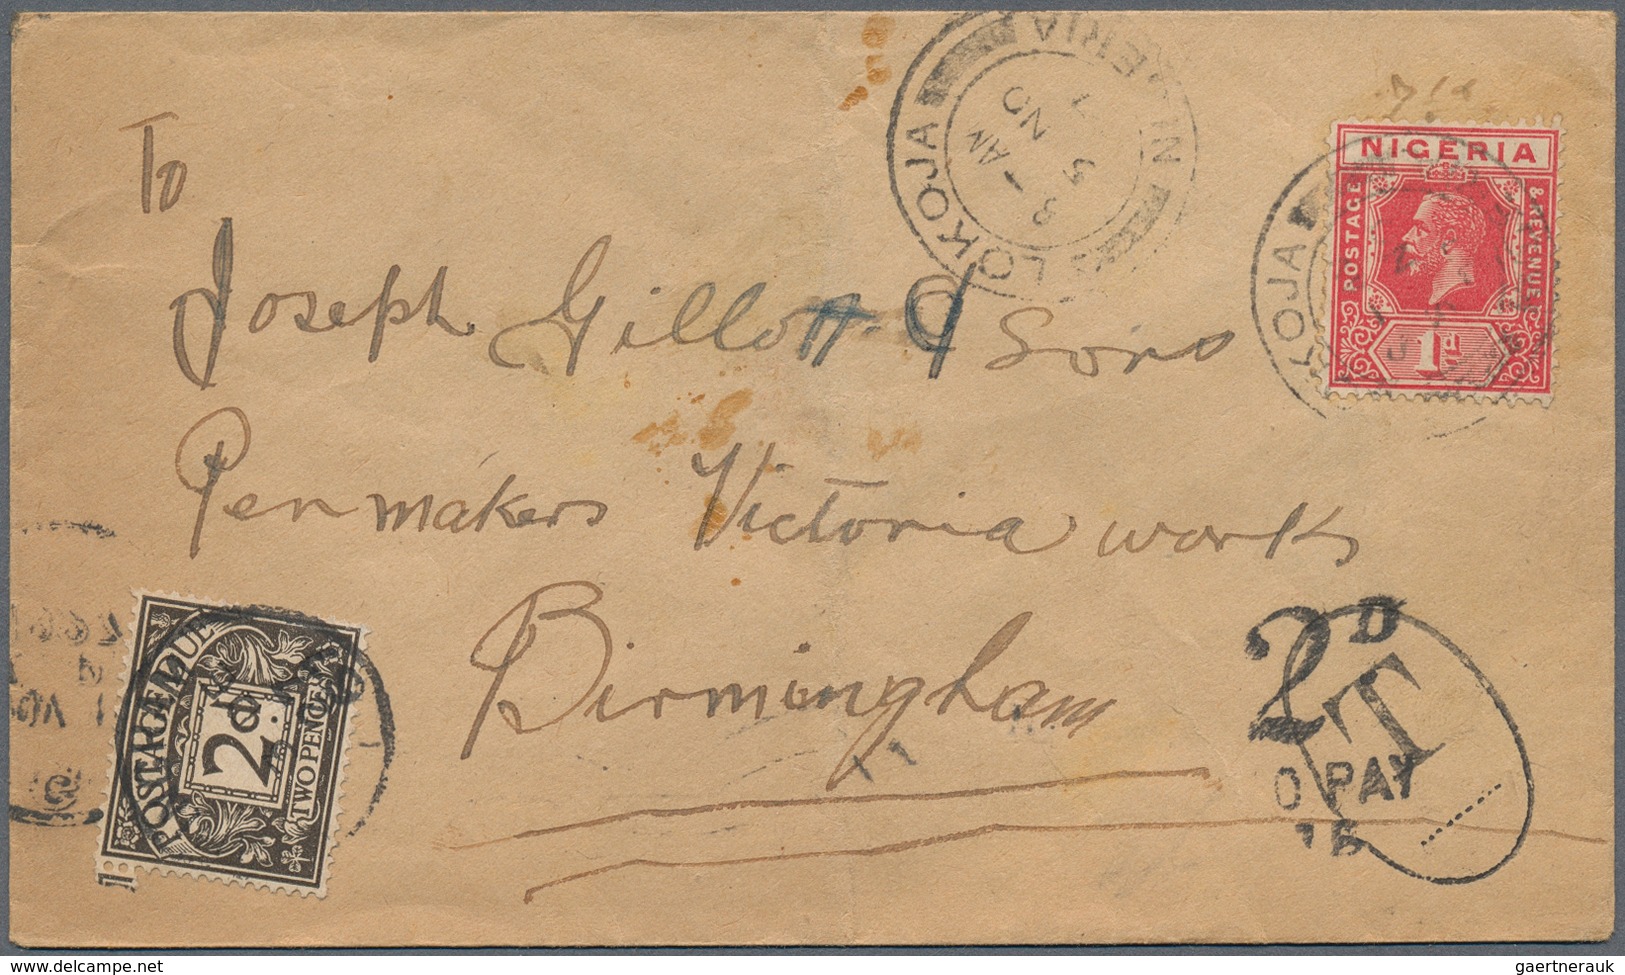 To
Joseph Gillott & Sons
Penmakers Victoria works
Birmingham
LOKOJA
NIGERIA
POSTAGE
& REVENUE
1d
KOJA
POSTAGE DUE
2d
TWO PENCE
2D
T
O PAY
delcampe.net
gaertnerauk